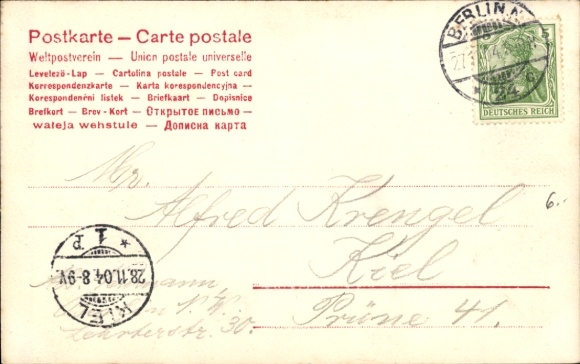 Postkarte — Carte postale
Weltpostverein — Union postale universelle
Levelező-Lap — Cartolina postale — Post card
Korrespondenzkarte — Karta korespondencyjna —
Korespondenční listek — Briefkaart — Dopisnice
Brefkort — Brev-Kort — Открытое письмо —
waleja wehstule — Дописна карта
BERLIN, N.
27
24
DEUTSCHES REICH
Mr.
Alfred Krengel
Kiel
Prüne 41.
6.-
1 P
28.11.04. 8-9V.
KIEL
N.W.
Lehrterstr. 30.